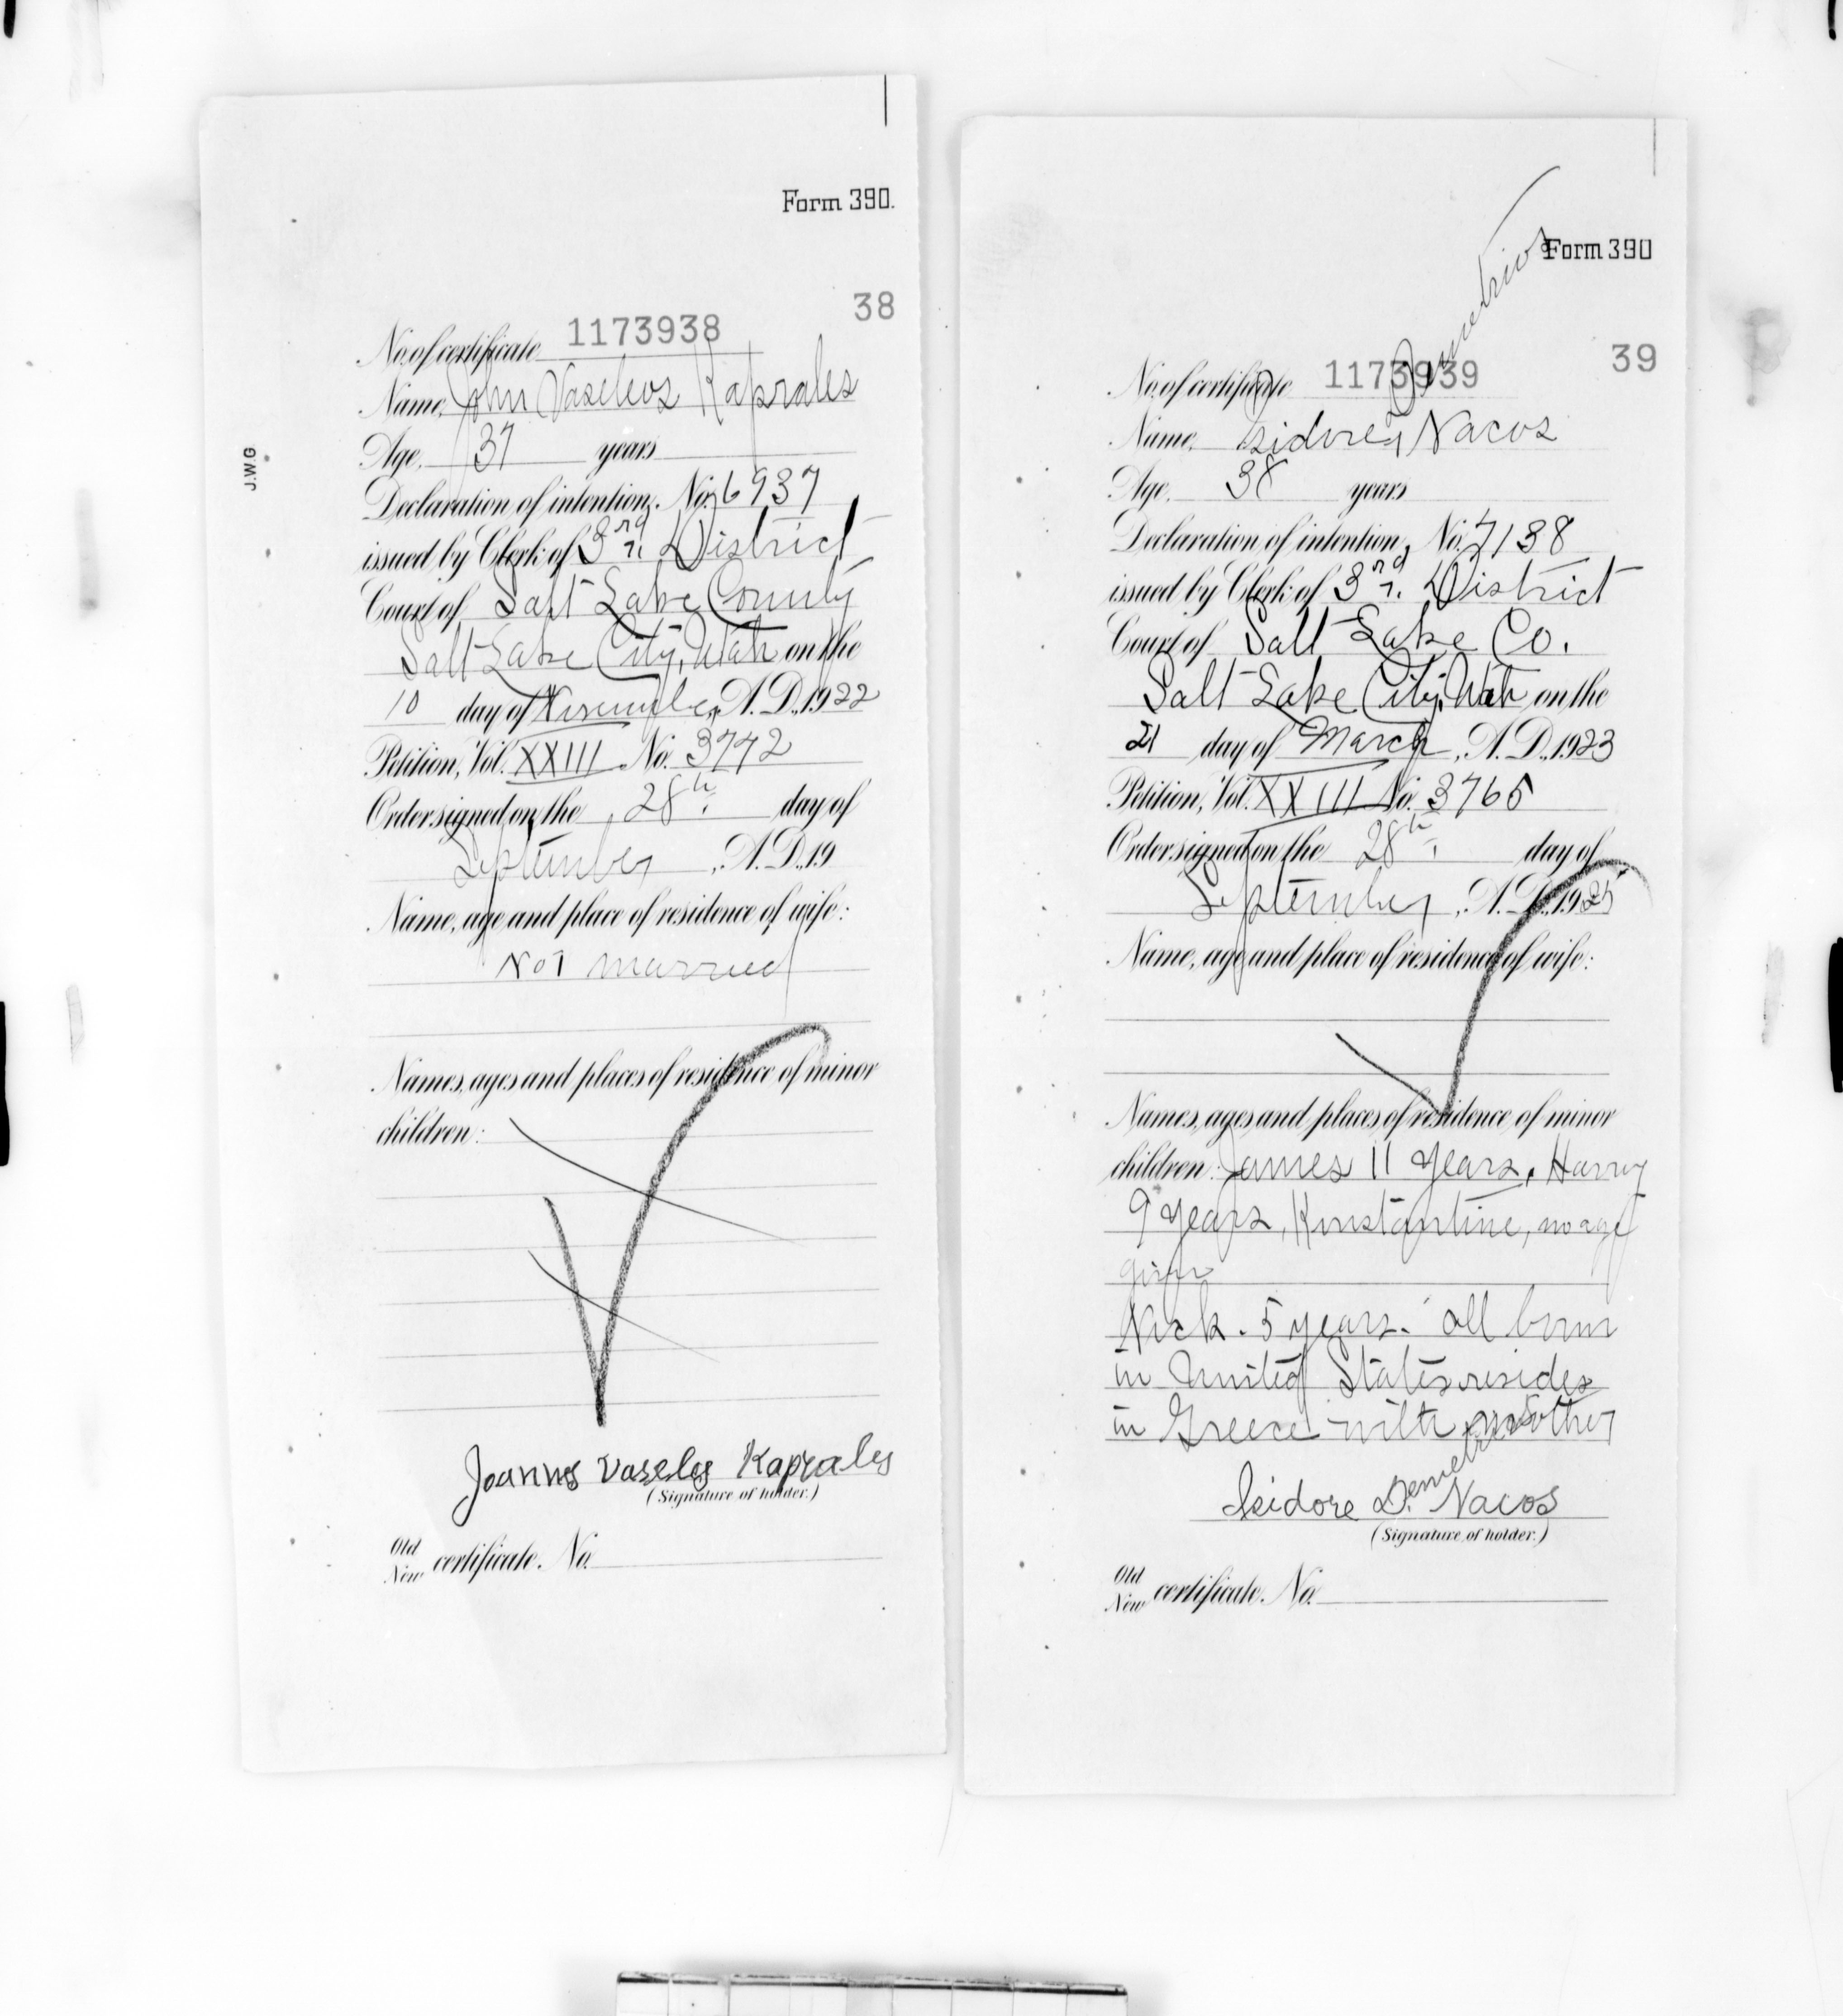 Form 390.
38
No. of certificate 1173938
Name, John Vaseleos Kaprales
Age, 37 years
Declaration of intention, No. 6937
issued by Clerk of 3rd. District
Court of Salt Lake County
Salt Lake City, Utah on the
10 day of November, A. D., 1922
Petition, Vol. XXIII No. 3772
Order signed on the 28th. day of
September, A. D., 19
Name, age and place of residence of wife:
Not married
Names, ages and places of residence of minor
children:
Joannes Vaseles Kaprales
(Signature of holder.)
Old
New certificate. No.
J.W.G
Form 390
39
Demetrios
No. of certificate 1173939
Name, Isidore Nacos
Age, 38 years
Declaration of intention, No. 7138
issued by Clerk of 3rd. District
Court of Salt Lake Co.
Salt Lake City, Utah on the
21 day of March, A. D., 1923
Petition, Vol. XXIII No. 3765
Order signed on the 28th. day of
September, A. D., 1925
Name, age and place of residence of wife:
Names, ages and places of residence of minor
children: James 11 years, Harry
9 years, Konstantine, no age
given
Nick. 5 years. all born
in United States resides
in Greece with mother
Isidore Demetrios Nacos
(Signature of holder.)
Old
New certificate. No.